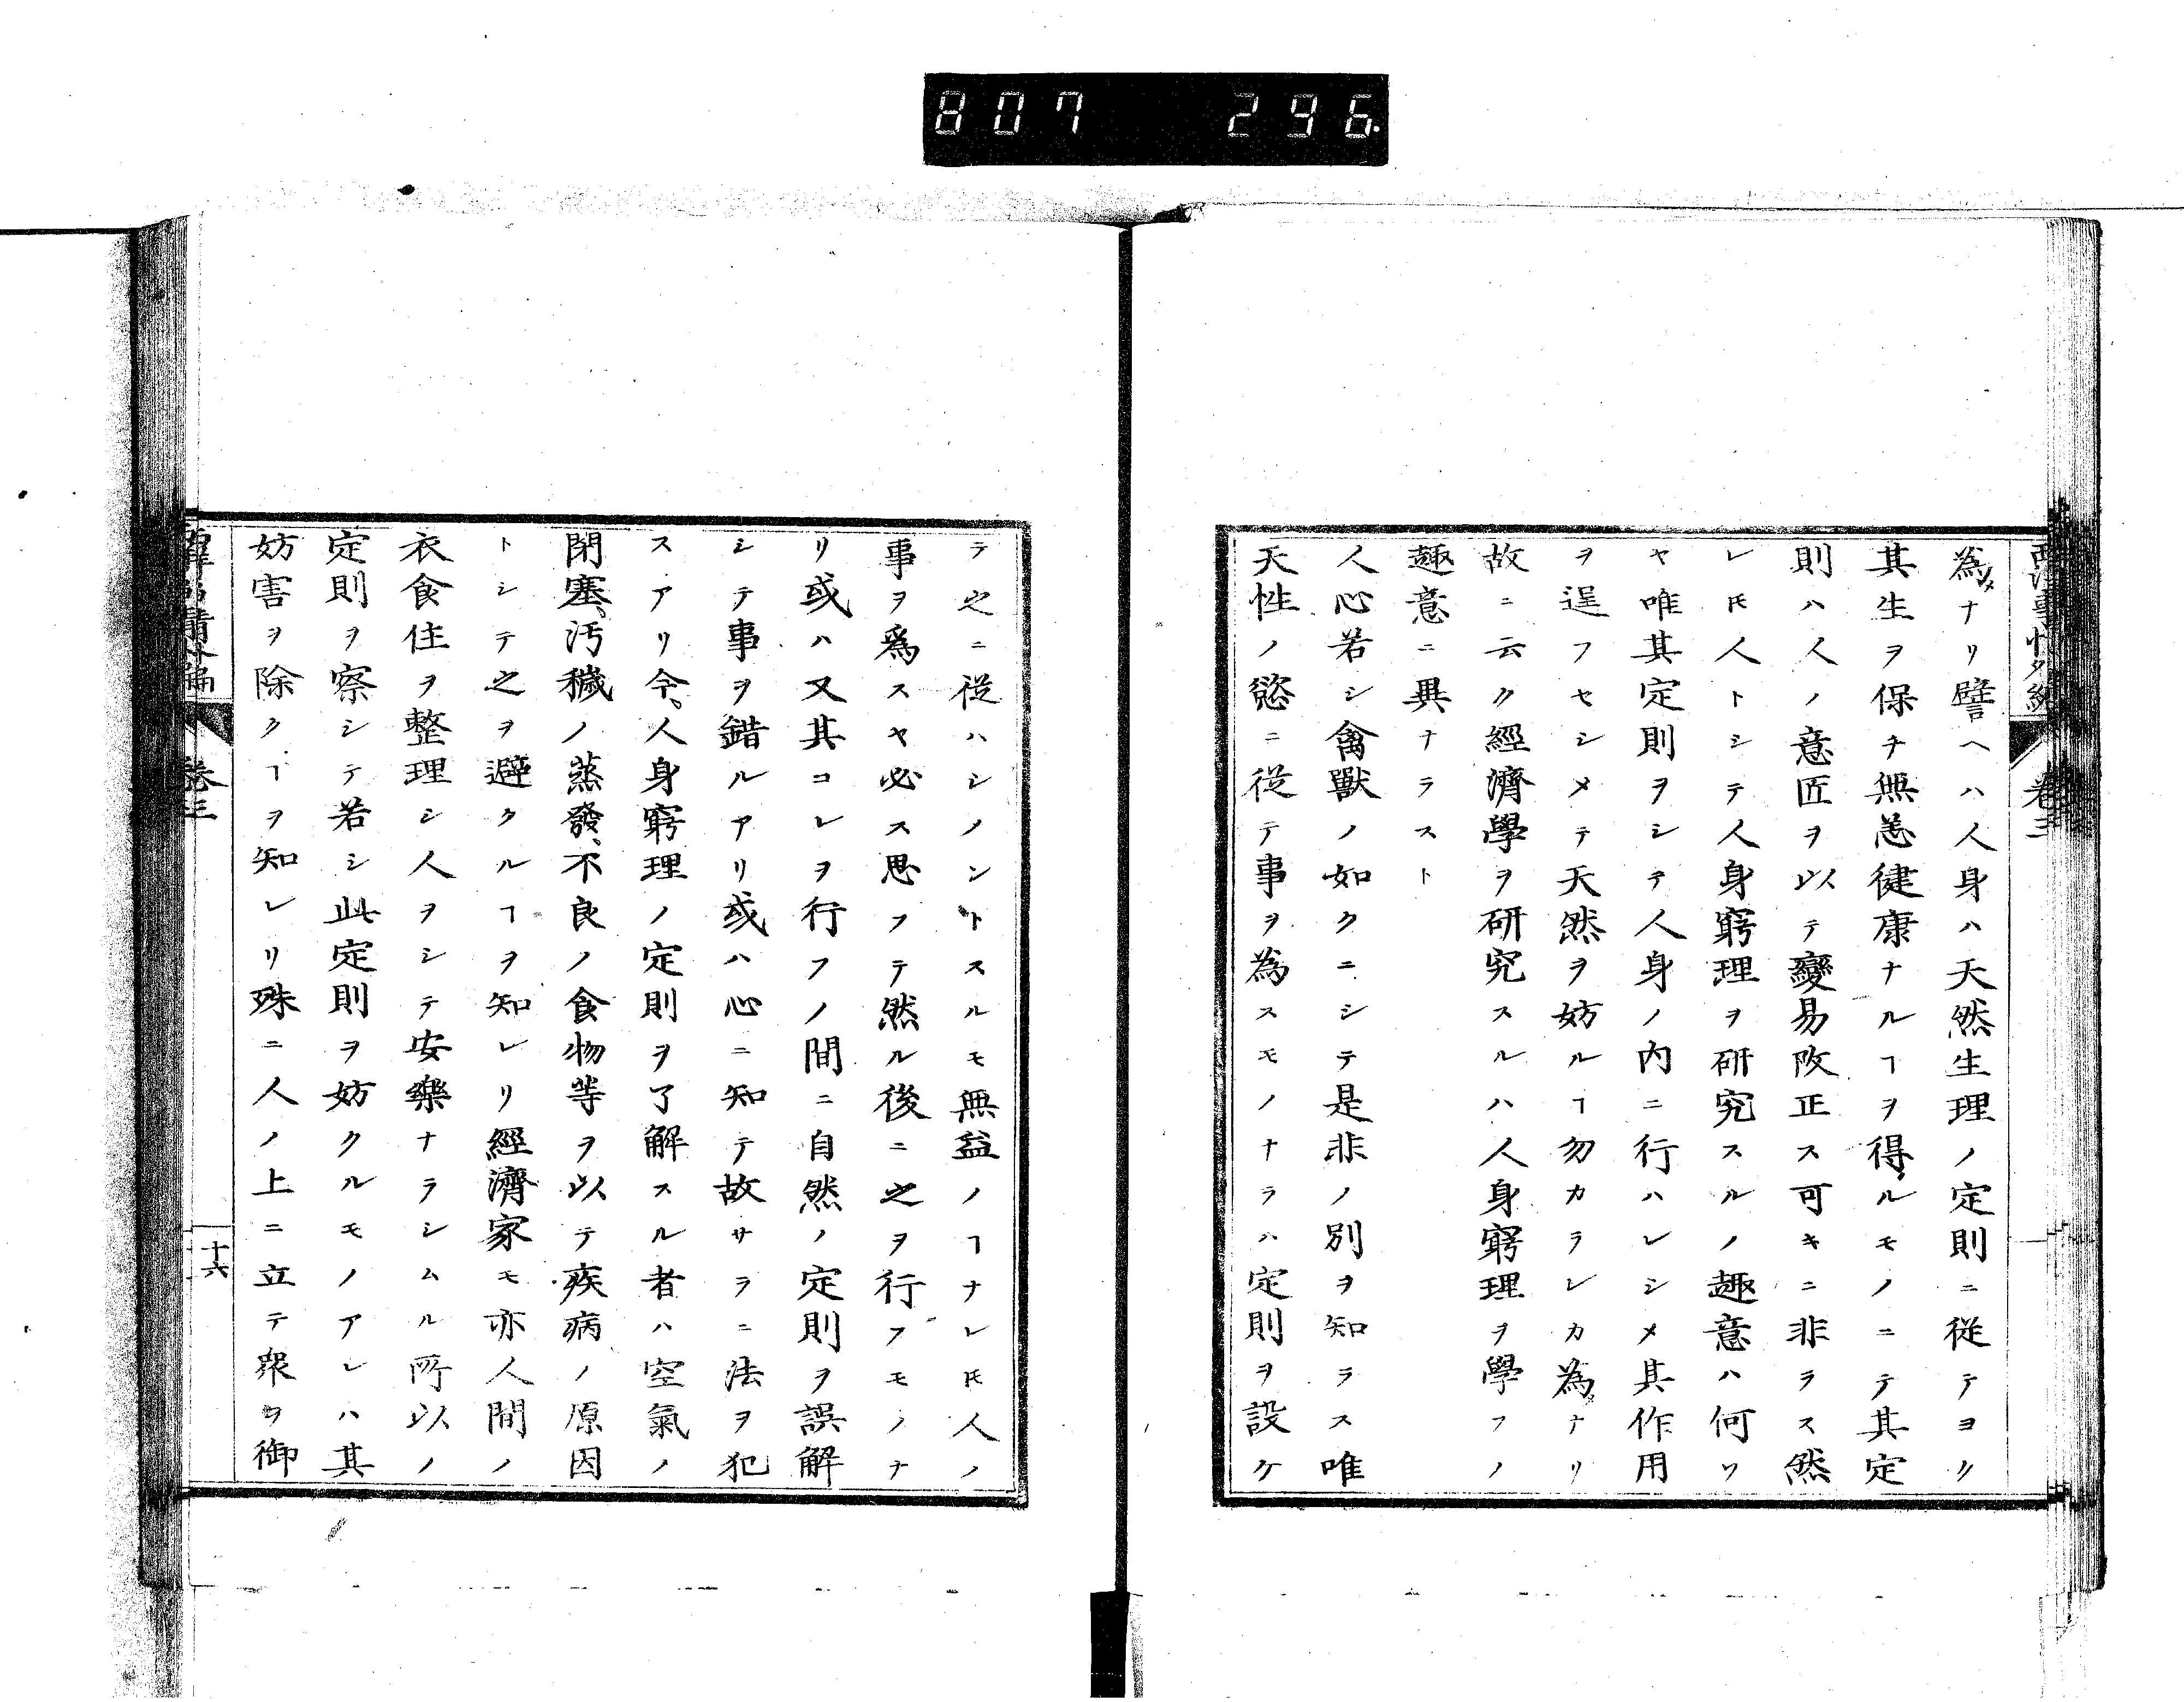 807 296.
西洋事情外編 卷三
為メナリ譬ヘハ人身ハ天然生理ノ定則ニ從テヨク
其生ヲ保チ無恙健康ナルヿヲ得ルモノニテ其定
則ハ人ノ意匠ヲ以テ變易改正ス可キニ非ラス然
レ𪜈人トシテ人身窮理ヲ研究スルノ趣意ハ何ソ
ヤ唯其定則ヲシテ人身ノ內ニ行ハレシメ其作用
ヲ逞フセシメテ天然ヲ妨ルヿ勿カラレカ為メナリ
故ニ云ク經濟學ヲ研究スルハ人身窮理ヲ學フノ
趣意ニ異ナラスト
人心若シ禽獸ノ如クニシテ是非ノ別ヲ知ラス唯
天性ノ慾ニ從テ事ヲ為スモノナラハ定則ヲ設ケ
テ之ニ從ハシメントスルモ無益ノヿナレ𪜈人ノ
事ヲ爲スヤ必ス思フテ然ル後ニ之ヲ行フモノナ
リ或ハ又其コレヲ行フノ間ニ自然ノ定則ヲ誤解
シテ事ヲ錯ルアリ或ハ心ニ知テ故サラニ法ヲ犯
スアリ今、人身窮理ノ定則ヲ了解スル者ハ空氣ノ
閉塞、汚穢ノ蒸發、不良ノ食物等ヲ以テ疾病ノ原因
トシテ之ヲ避クルヿヲ知レリ經濟家モ亦人間ノ
衣食住ヲ整理シ人ヲシテ安樂ナラシムル所以ノ
定則ヲ察シテ若シ此定則ヲ妨クルモノアレハ其
妨害ヲ除クヿヲ知レリ殊ニ人ノ上ニ立テ衆ヲ御
西洋事情外編 卷三 十六